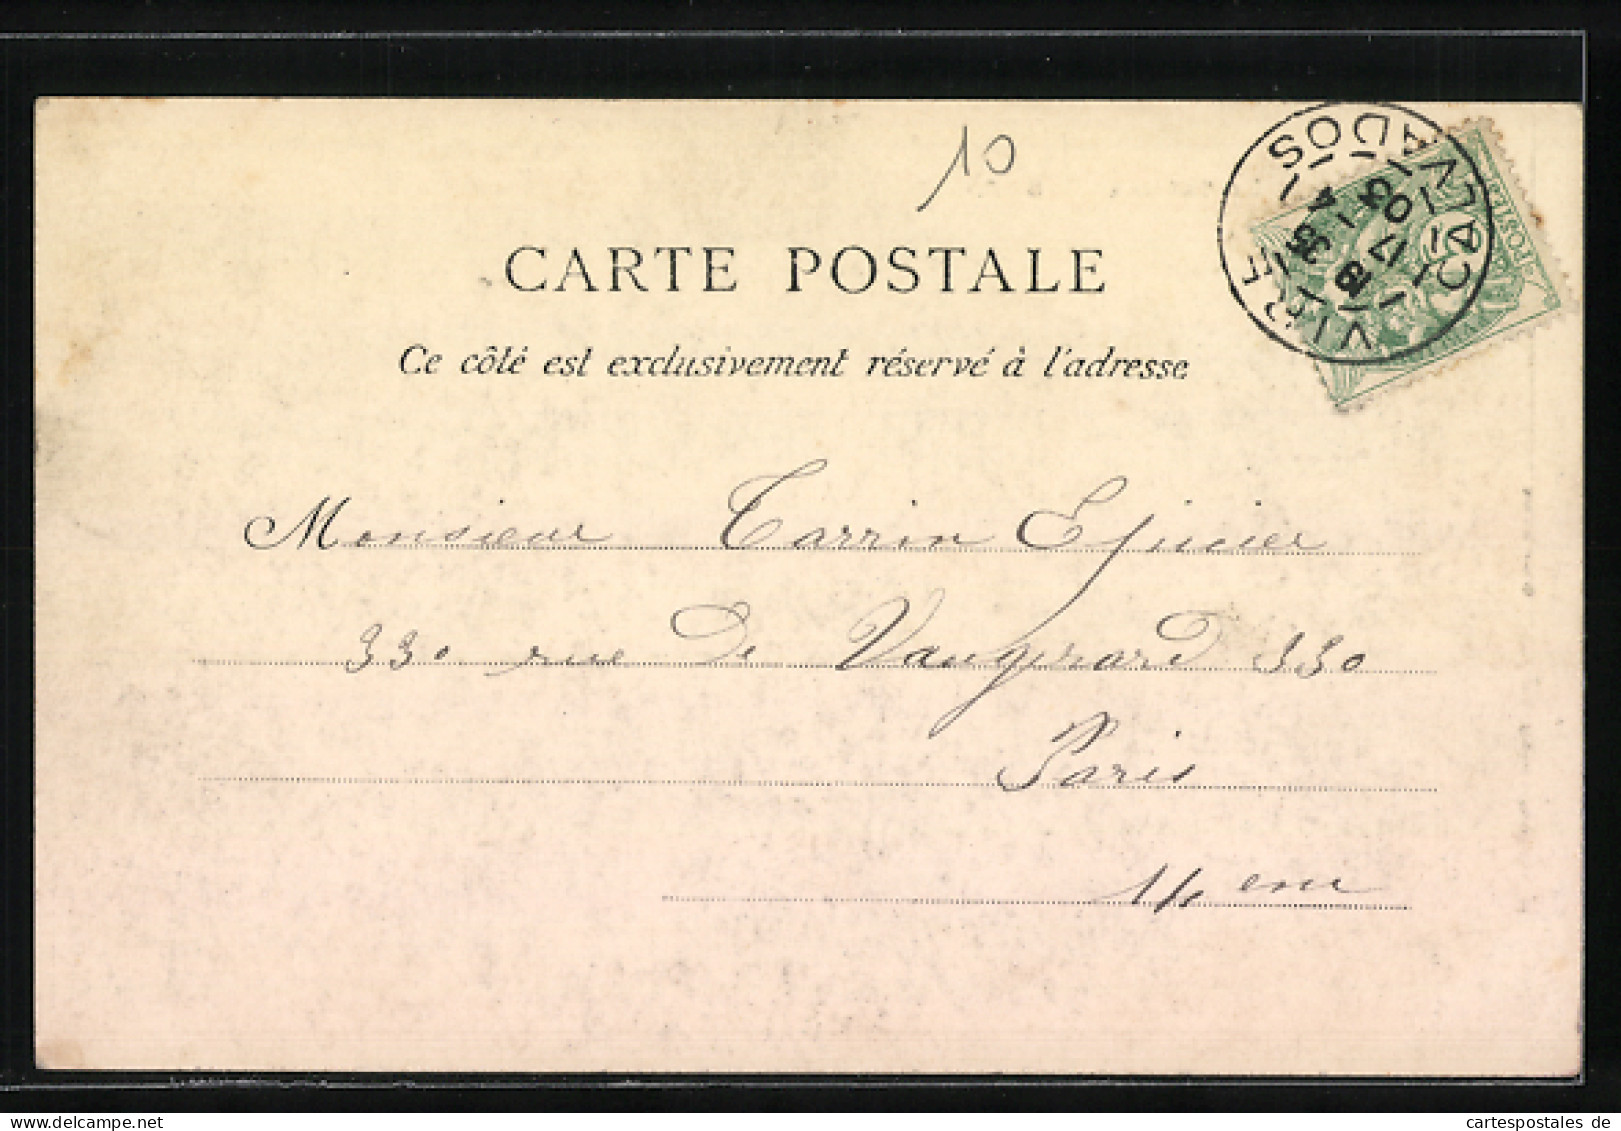 10
CARTE POSTALE
Ce côté est exclusivement réservé à l'adresse
VIRE
CALVADOS
Monsieur Tarrin Epicier
330 rue de Vaugirard 330
Paris
14 eme
cartespostales de